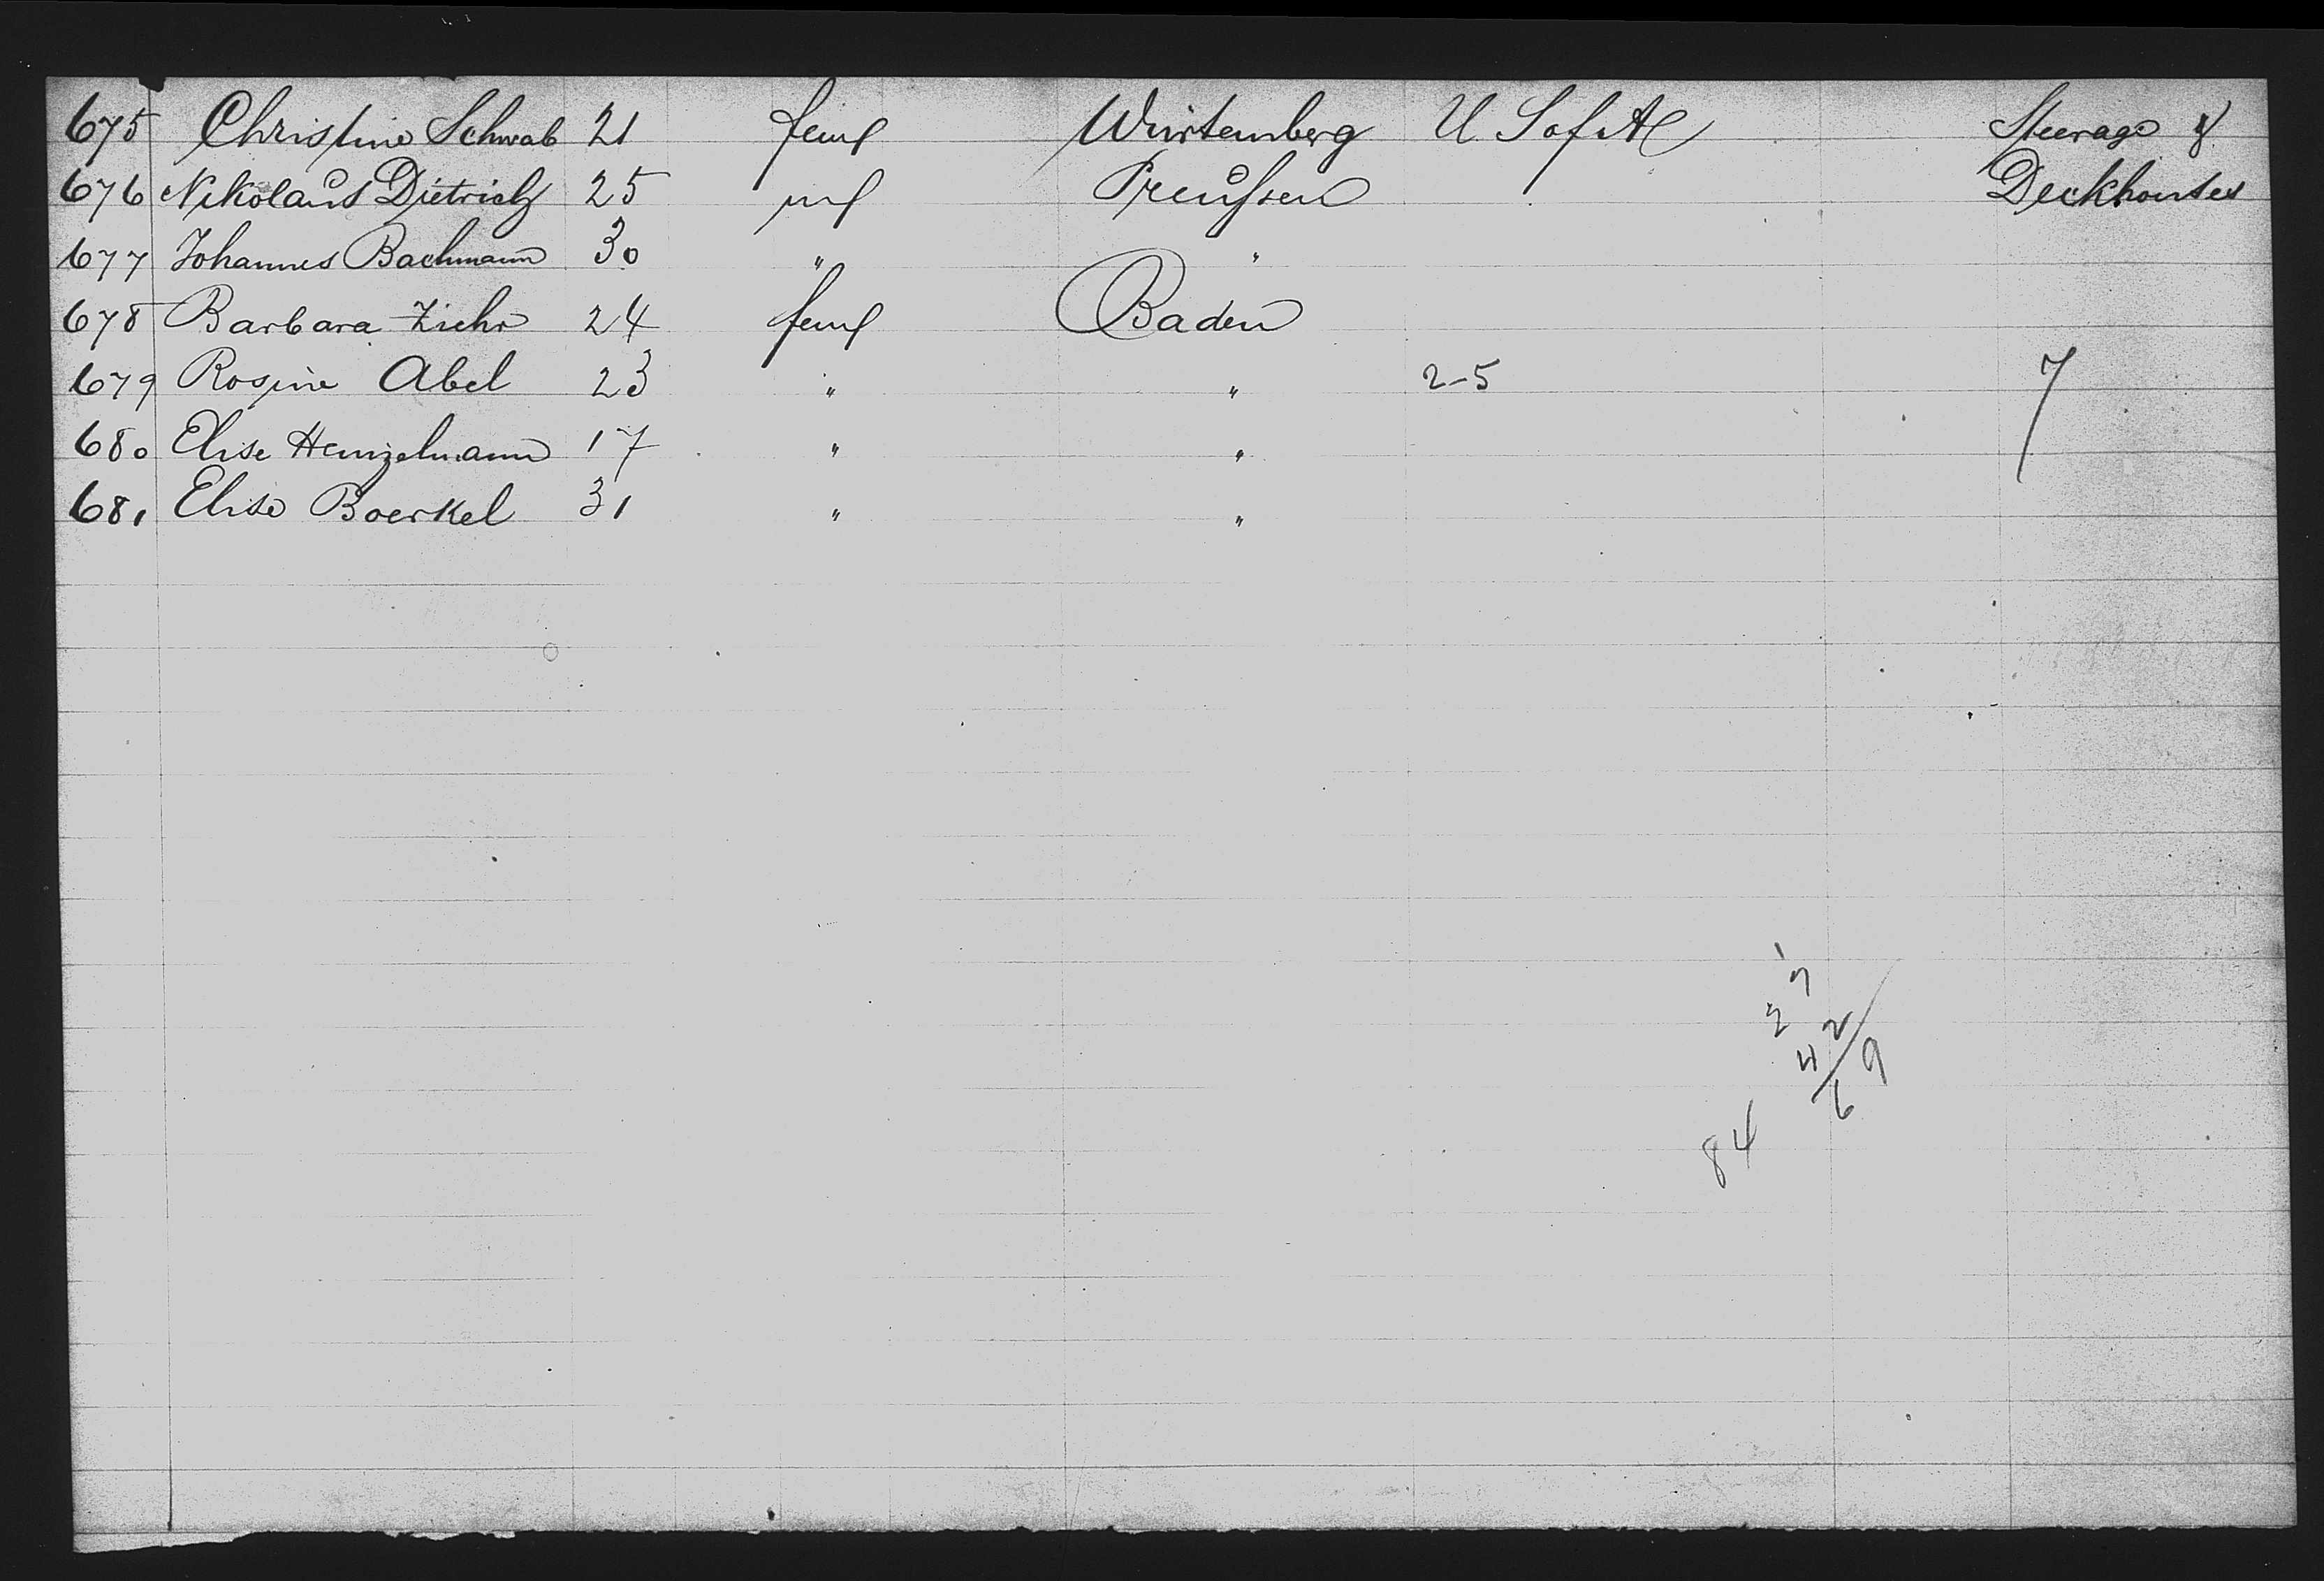 675 Christine Schwab 21 fem Würtemberg U S of A Steerage &
676 Nikolaus Dietrich 25 m Preußen Deckhouses
677 Johannes Bachmann 30 " "
678 Barbara Ziehr 24 fem Baden
679 Rosine Abel 23 " " 2-5 7
680 Elise Heinzelmann 17 " "
681 Elise Boerkel 31 " "
1
27
42
69
84